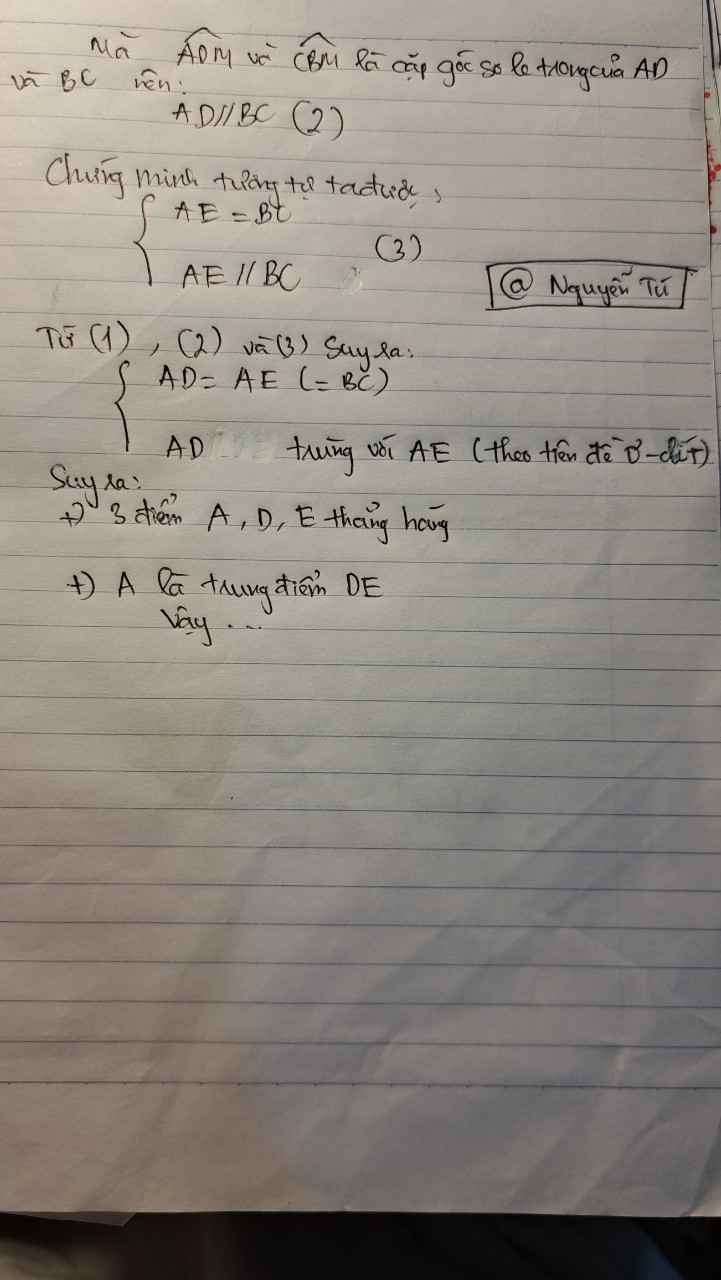 Mà ADM và CBM là cặp góc so le trong của AD
và BC nên:
AD//BC (2)
Chứng minh tương tự ta được,
AE = BC
(3)
AE // BC
@ Nguyễn Tú
Từ (1), (2) và (3) Suy ra:
AD = AE (= BC)
AD trùng với AE (theo tiên đề Ơ-clít)
Suy ra:
+) 3 điểm A, D, E thẳng hàng
+) A là trung điểm DE
Vậy ...